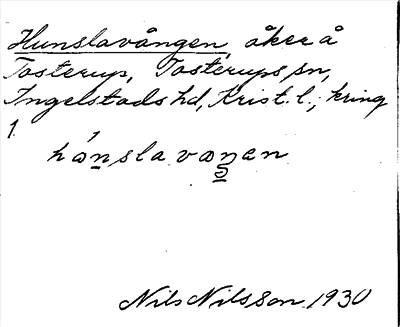 Hunslavången, åker å
Tosterup, Tosterups sn,
Ingelstads hd, Krist. l.; kring
1
hónslavaŋen
Nils Nilsson 1930